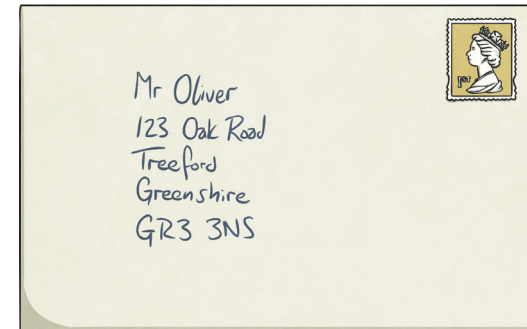 1ST
Mr Oliver
123 Oak Road
Treeford
Greenshire
GR3 3NS